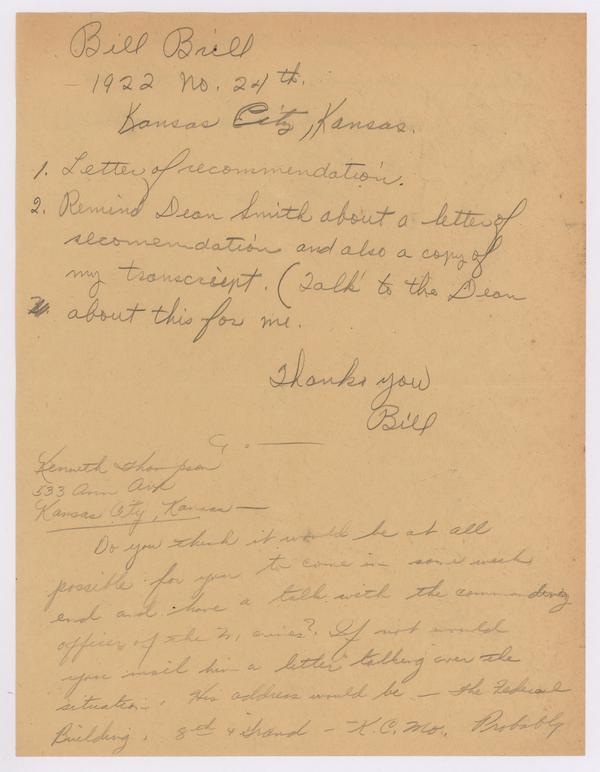 Bill Brill
- 1922 No. 24th.
Kansas City, Kansas.
1. Letter of recommendation.
2. Remind Dean Smith about a letter of
recomendation and also a copy of
my transcript. (Talk to the Dean
about this for me.
Thanks you
Bill
Kenneth Thompson
533 Ann Ave
Kansas City, Kansas —
Do you think it would be at all
possible for you to come in some week
end and have a talk with the commanding
officer of the Marines? If not would
you mail him a letter talking over the
situation. His address would be — the Federal
Building. 8th & Grand - K.C. Mo. Probably